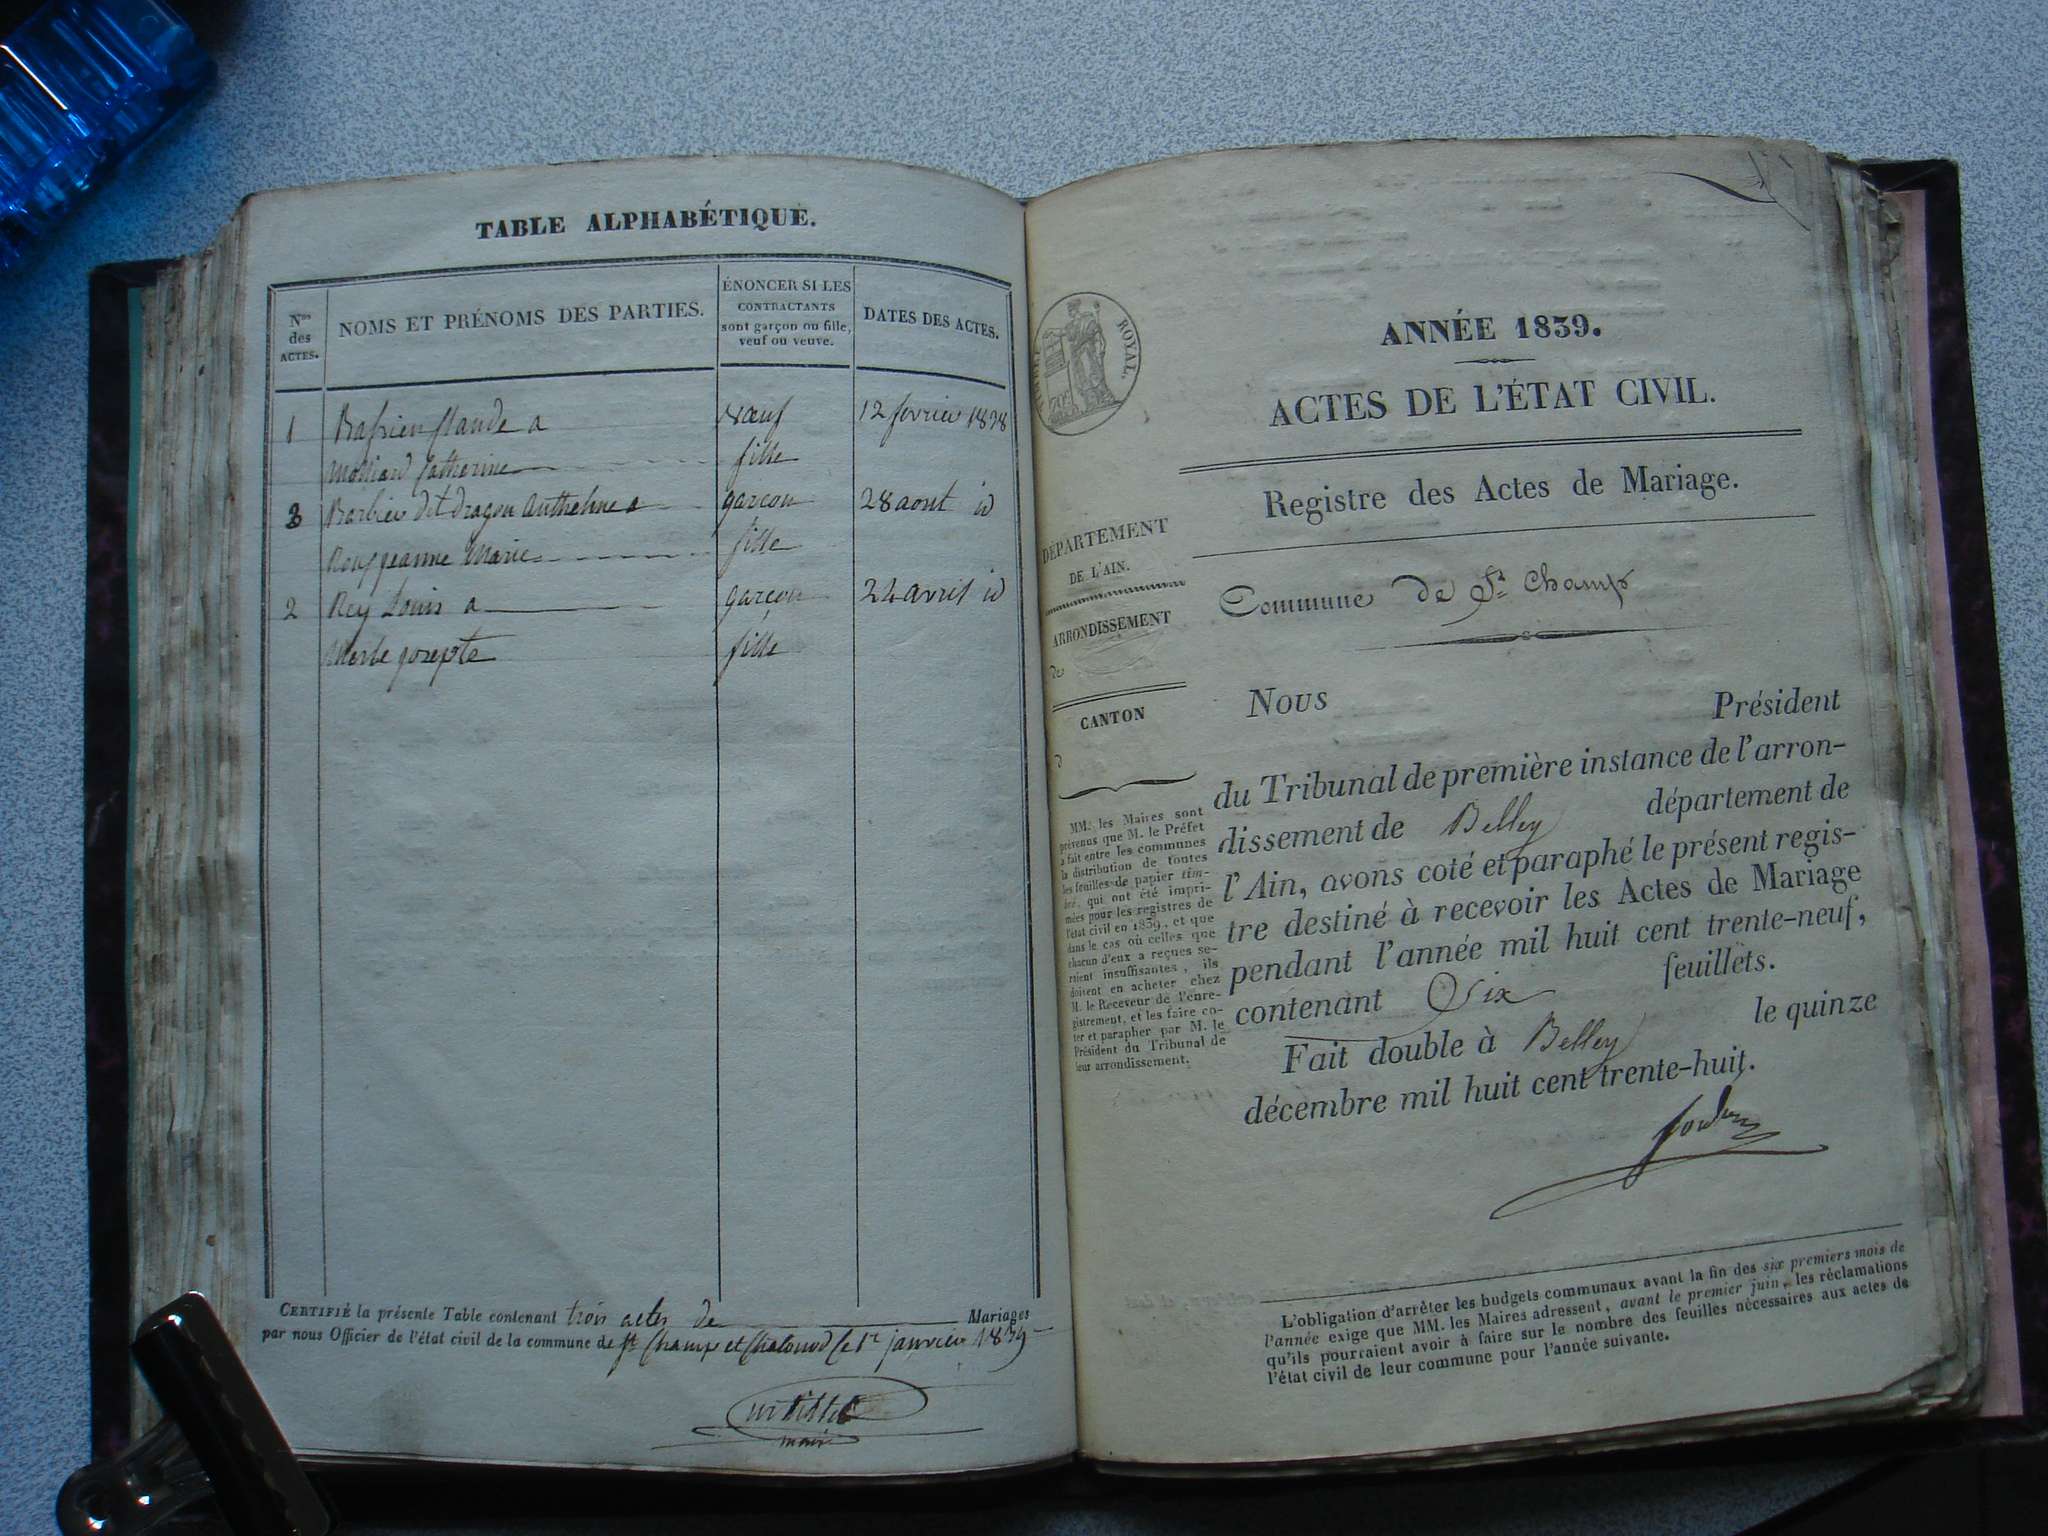 TABLE ALPHABÉTIQUE.
Nos des ACTES.
NOMS ET PRÉNOMS DES PARTIES.
ÉNONCER SI LES
CONTRACTANTS
sont garçon ou fille,
veuf ou veuve.
DATES DES ACTES.
1 Claude a Vœuf 12 fevrier 1838
Catherine fille
3 Barbier dit dragon Anthelme a garcon 28 aout id
jeanne Marie fille
2 Rey Louis a garçon 24 avril id
Merle josepte fille
CERTIFIÉ la présente Table contenant trois actes de Mariages
par nous Officier de l'état civil de la commune de St Champ et Chatonod le 1er janvier 1839
maire
TIMBRE ROYAL.
ANNÉE 1839.
ACTES DE L'ÉTAT CIVIL.
Registre des Actes de Mariage.
DÉPARTEMENT
DE L'AIN.
ARRONDISSEMENT
de
CANTON
d
Commune de St. Champ
MM. les Maires sont
prévenus que M. le Préfet
a fait entre les communes
la distribution de toutes
les feuilles de papier tim-
bré, qui ont été impri-
mées pour les registres de
l'état civil en 1839, et que
dans le cas où celles que
chacun d'eux a reçues se-
raient insuffisantes, ils
doivent en acheter chez
M. le Receveur de l'enre-
gistrement, et les faire co-
ter et parapher par M. le
Président du Tribunal de
leur arrondissement.
Nous Président
du Tribunal de première instance de l'arron-
dissement de Belley département de
l'Ain, avons coté et paraphé le présent regis-
tre destiné à recevoir les Actes de Mariage
pendant l'année mil huit cent trente-neuf,
contenant Six feuillets.
Fait double à Belley le quinze
décembre mil huit cent trente-huit.
L'obligation d'arrêter les budgets communaux avant la fin des six premiers mois de
l'année exige que MM. les Maires adressent, avant le premier juin, les réclamations
qu'ils pourraient avoir à faire sur le nombre des feuilles nécessaires aux actes de
l'état civil de leur commune pour l'année suivante.